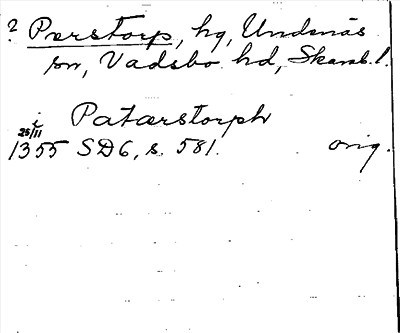 ? Perstorp, hg, Undenäs
sn, Vadsbo hd, Skarab. l.
i Patærstorph
25/11
1355 SD6, s. 581. orig.